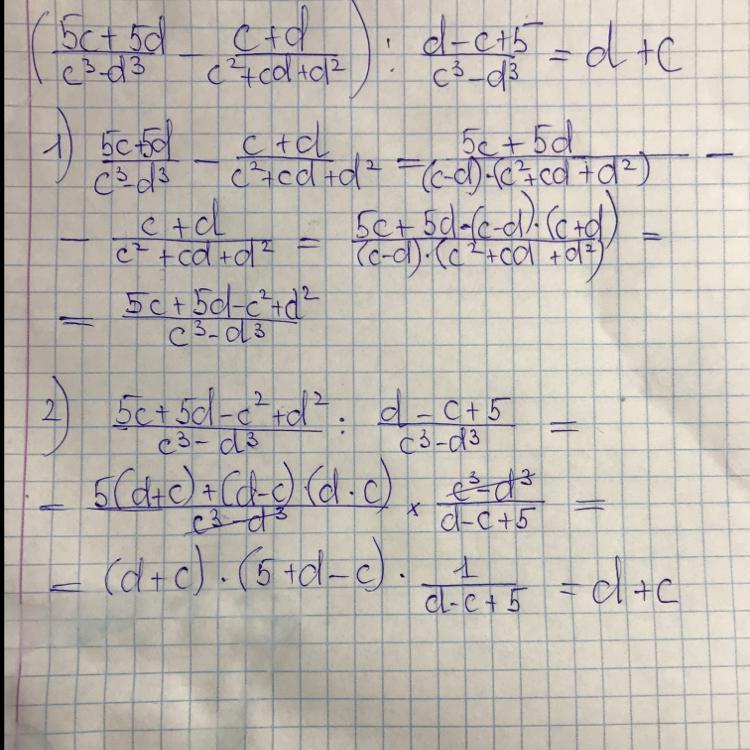 ( (5c+5d)/(c³-d³) - (c+d)/(c²+cd+d²) ) : (d-c+5)/(c³-d³) = d+c
1) (5c+5d)/(c³-d³) - (c+d)/(c²+cd+d²) = (5c+5d)/((c-d)·(c²+cd+d²)) -
- (c+d)/(c²+cd+d²) = (5c+5d-(c-d)·(c+d))/((c-d)·(c²+cd+d²)) =
= (5c+5d-c²+d²)/(c³-d³)
2) (5c+5d-c²+d²)/(c³-d³) : (d-c+5)/(c³-d³) =
= (5(d+c)+(d-c)·(d·c))/(c³-d³) × (c³-d³)/(d-c+5) =
= (d+c)·(5+d-c)·1/(d-c+5) = d+c